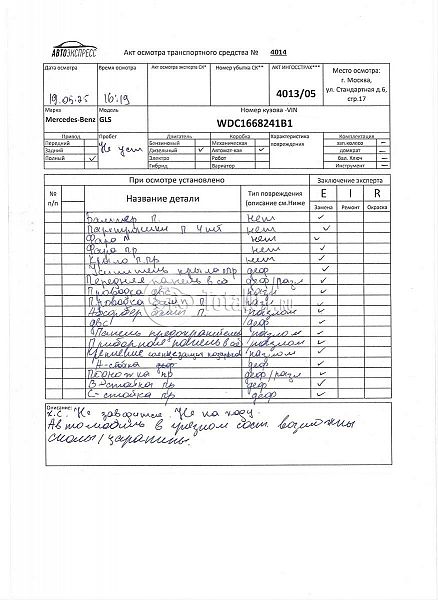 АВТОЭКСПРЕСС
Акт осмотра транспортного средства № 4014
Дата осмотра Время осмотра Акт осмотра эксперта СК* Номер убытка СК** АКТ ИНГОССТРАХ*** Место осмотра:
г. Москва,
ул. Стандартная д.6,
стр.17
19.05.25 16:19 4013/05
Марка Модель Номер кузова -VIN
Mercedes-Benz GLS WDC1668241B1
Привод Пробег Двигатель Коробка Характеристика повреждения Комплектация
Передний Бензиновый Механическая зап.колесо —
Задний Не уст Дизельный ✓ Автомат-кая ✓ домкрат —
Полный ✓ Электро Робот Бал. Ключ —
Гибрид Вариатор Инструмент —
При осмотре установлено Заключение эксперта
№ п/п Название детали Тип повреждения (описание см.Ниже E I R
Замена Ремонт Окраска
Бампер П. нет ✓
Парктроники П 4 шт нет ✓
Фара Л нет ✓
Фара пр нет ✓
Крыло П.пр нет ✓
Усилитель крыла пр деф ✓
Передняя панель в сб деф/разл ✓
Проводка двс разл ✓
Проводка бамп П. разл ✓
Абсорбер бамп П. разлом ✓
двс деф ✓
Панель предохранителей разлом ✓
Приборная панель в сб разлом ✓
Крепление разлом ✓
А-стойка деф ✓
Подножка пр деф/разл ✓
В-стойка пр деф ✓
С-стойка пр деф ✓
Описание:
х.с. Не заводится. Не на ходу.
Автомобиль в грязном сост. возможны
сколы/царапины.